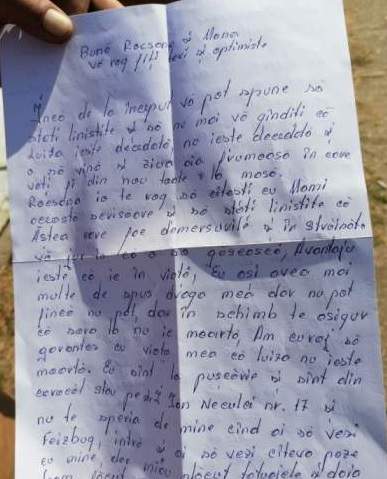 Bună Rocsana și Mona
vă rog fiți tari și optimiste
Încă de la început vă pot spune să
stați linistite și să nu mai vă gindiți că
Luiza ieste decedată, nu ieste decedată și
o să vină și ziua aia frumoasă în care
veți fi din nou toate la masă.
Rocsana ia te rog să citești cu Mami
aceasta scrisoare și să stați linistite că
Ăstea care fac demersurile și în străinăta
vă jur că o să găsească, Avantaju
ieste că ie în viață, Eu asi avea mai
multe de spus draga mea dar nu pot
fincă nu pot, dar în schimb te asigur
că sora ta nu ie moartă, Am curaj să
garantez cu viața mea că luiza nu ieste
moartă. Eu sint la pușcărie și sint din
caracal stau pe Ion Neculci nr. 17 și
nu te speria de mine cind ai să vezi
Feizbug, intră și ai să vezi citeva poze
cu mine, dar
plăcut tatuajele și doia